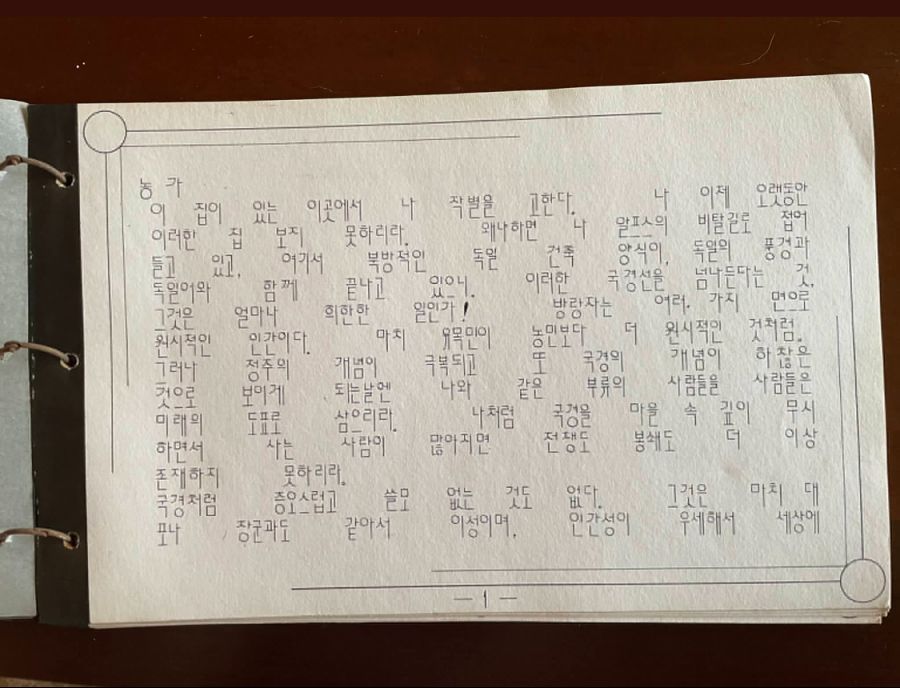 농 가
이 집이 있는 이곳에서 나 작별을 고한다. 나 이제 오랫동안
이러한 집 보지 못하리라. 왜냐하면 나 알프스의 비탈길로 접어
들고 있고, 여기서 북방적인 독일 건축 양식이, 독일의 풍경과
독일어와 함께 끝나고 있으니. 이러한 국경선을 넘나든다는 것,
그것은 얼마나 희한한 일인가! 방랑자는 여러 가지 면으로
원시적인 인간이다. 마치 유목민이 농민보다 더 원시적인 것처럼.
그러나 정주의 개념이 극복되고 또 국경의 개념이 하찮은
것으로 보이게 되는날엔 나와 같은 부류의 사람들을 사람들은
미래의 도표로 삼으리라. 나처럼 국경을 마음 속 깊이 무시
하면서 사는 사람이 많아지면 전쟁도 봉쇄도 더 이상
존재하지 못하리라.
국경처럼 증오스럽고 쓸모 없는 것도 없다. 그것은 마치 대
포나 장군과도 같아서 이성이며, 인간성이 우세해서 세상에
— 1 —